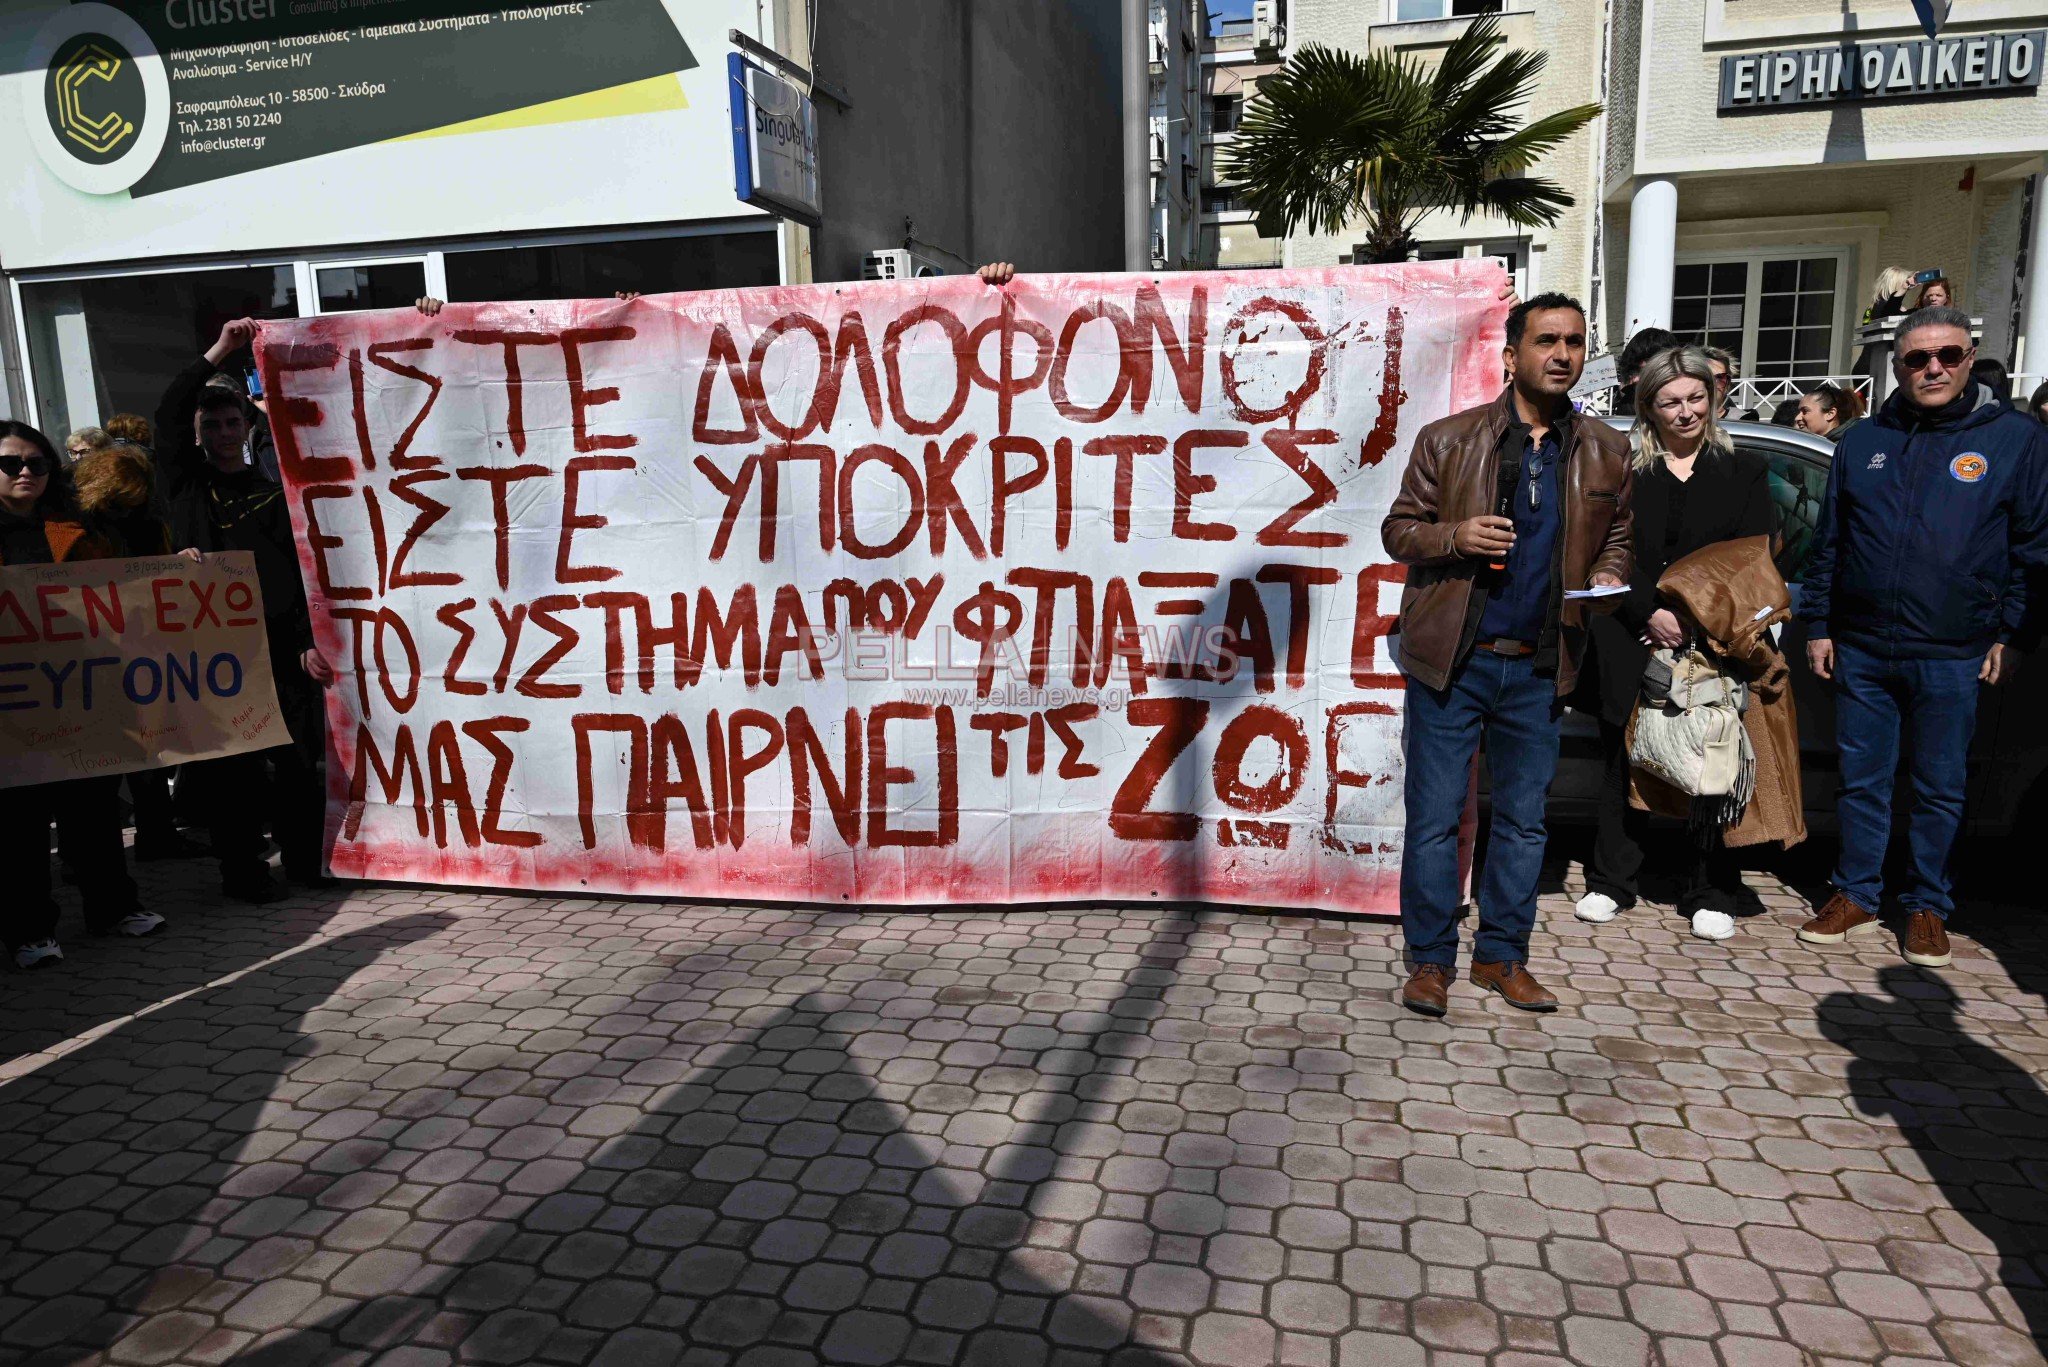 Cluster
Consulting &
Μηχανογράφηση - Ιστοσελίδες - Ταμειακά Συστήματα - Υπολογιστές -
Αναλώσιμα - Service Η/Υ
Σαφραμπόλεως 10 - 58500 - Σκύδρα
Τηλ. 2381 50 2240
info@cluster.gr
ΕΙΡΗΝΟΔΙΚΕΙΟ
ΕΙΣΤΕ ΔΟΛΟΦΟΝΟΙ
ΕΙΣΤΕ ΥΠΟΚΡΙΤΕΣ
ΤΟ ΣΥΣΤΗΜΑ ΠΟΥ ΦΤΙΑΞΑΤΕ
ΜΑΣ ΠΑΙΡΝΕΙ ΤΙΣ ΖΩΕΣ
PELLA NEWS
www.pellanews.gr
28/02/2023
Μαμά!!!
ΔΕΝ ΕΧΩ
ΞΥΓΟΝΟ
Βοήθεια
Κρυώνω
Μαμά
Φοβάμαι!!
Πονάω